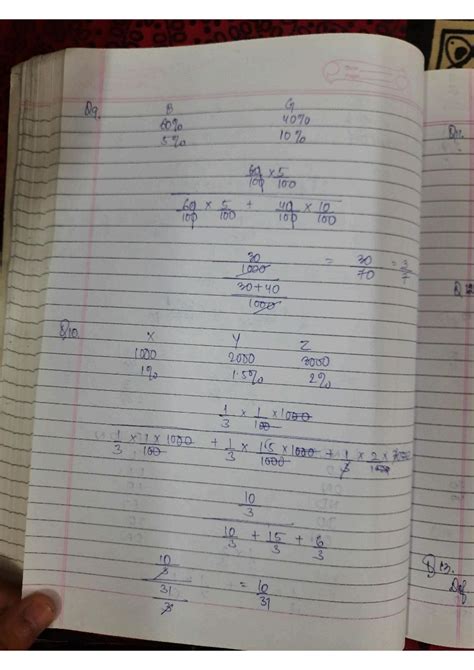 Q9. B G
60% 40%
5% 10%
60/100 × 5/100
60/100 × 5/100 + 40/100 × 10/100
30/1000 = 30/70 = 3/7
30+40/1000
Q10. X Y Z
1000 2000 3000
1% 1.5% 2%
1/3 × 1/100 × 1000
1/3 × 1/100 × 1000 + 1/3 × 15/1000 × 1000 + 1/3 × 2/1000 ×
10/3
10/3 + 15/3 + 6/3
10/3 = 10/31
31/3
Q13.
Def